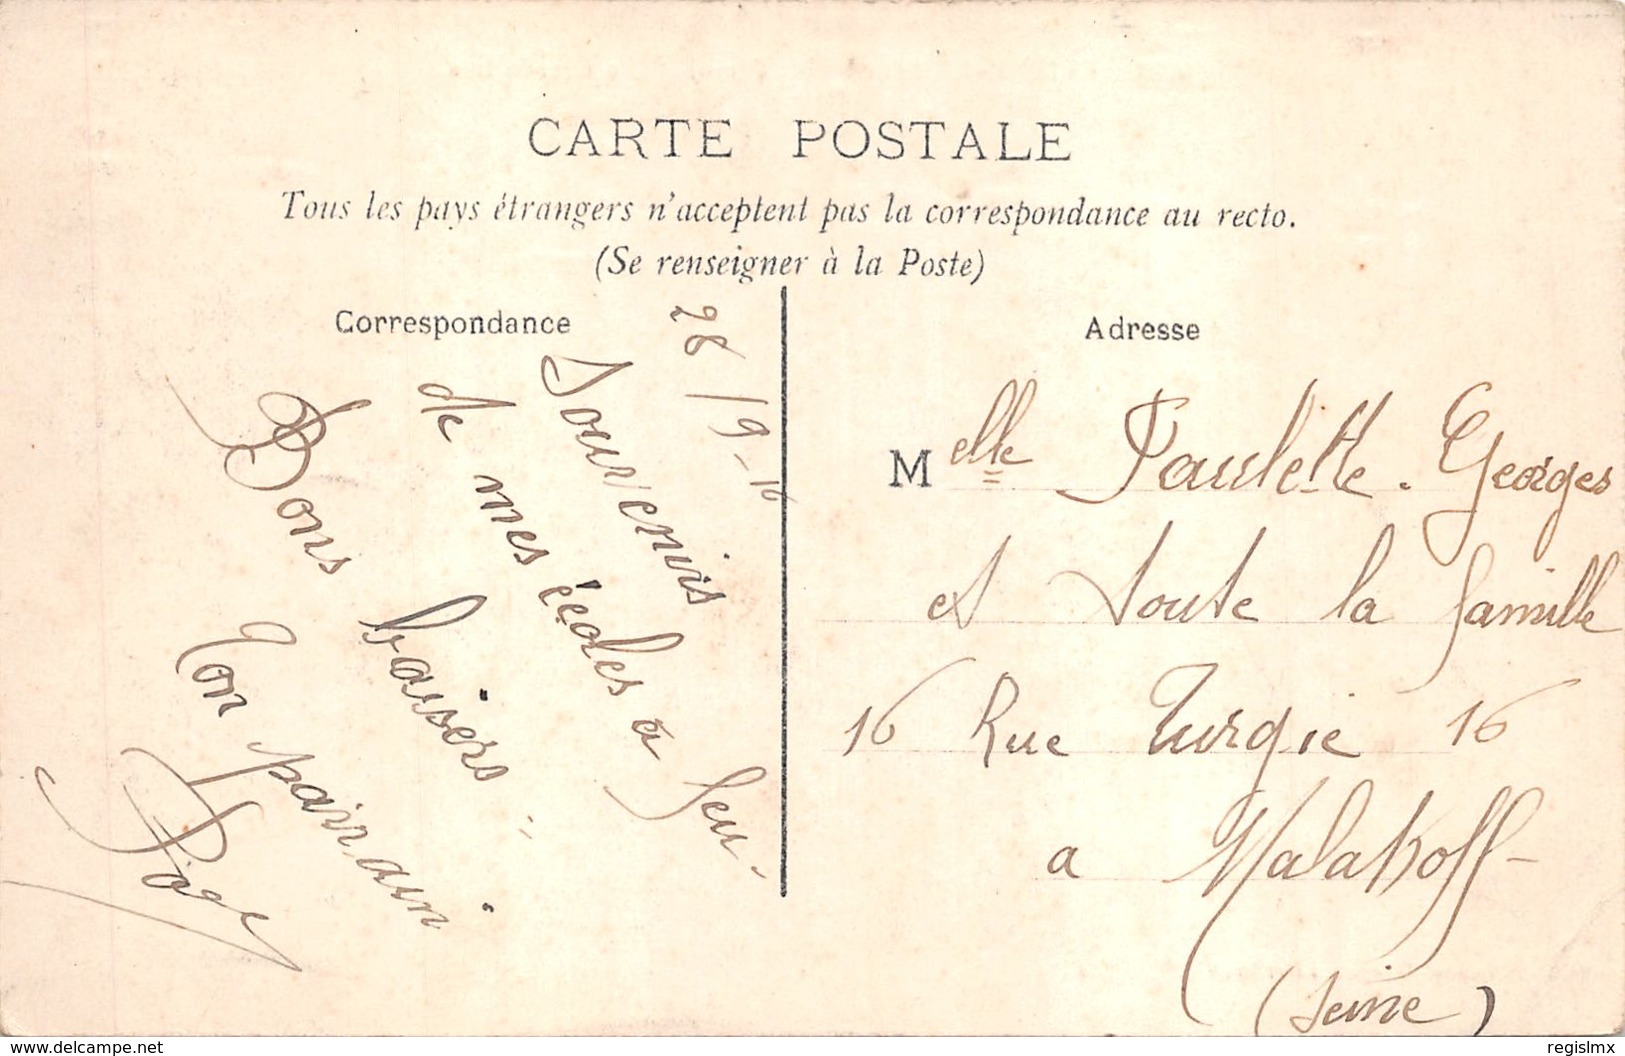 CARTE POSTALE
Tous les pays étrangers n'acceptent pas la correspondance au recto.
(Se renseigner à la Poste)
Correspondance
28/9-16
Souvenirs
de mes écoles à feu.
Bons baisers.
Ton parrain
Adresse
Melle Paulette. Georges
et toute la famille
16 Rue Turgie 16
a Malakoff-
(Seine)
delcampe.net
regislmx